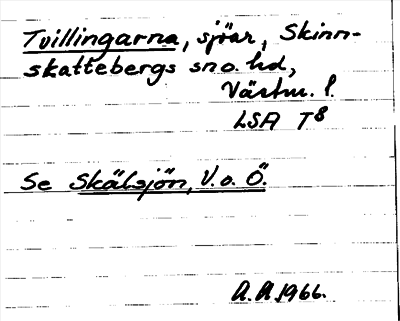 Tvillingarna, sjöar, Skinn-
skattebergs sn o. hd,
Västm. l.
LSA T8
Se Skälsjön, V. o. Ö.
A.A. 1966.